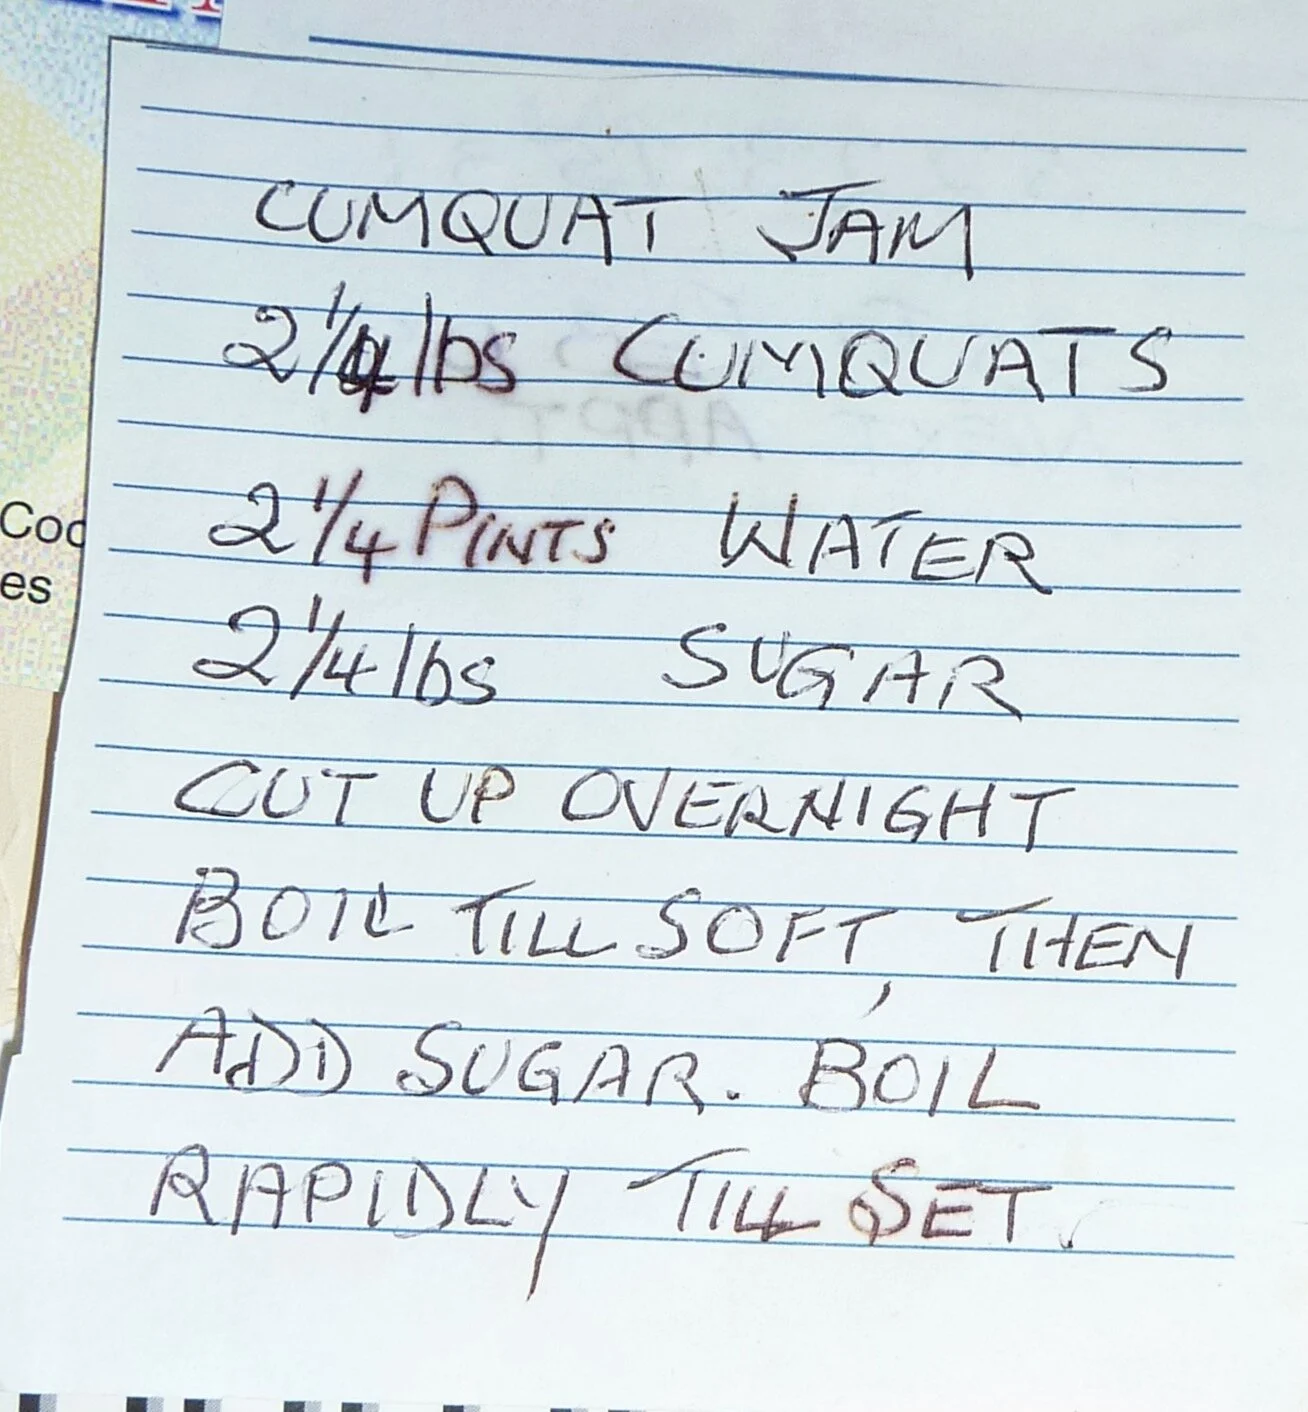 CUMQUAT JAM
2 1/4 lbs CUMQUATS
2 1/4 PINTS WATER
2 1/4 lbs SUGAR
CUT UP OVERNIGHT
BOIL TILL SOFT, THEN
ADD SUGAR. BOIL
RAPIDLY TILL SET.
Cod
es